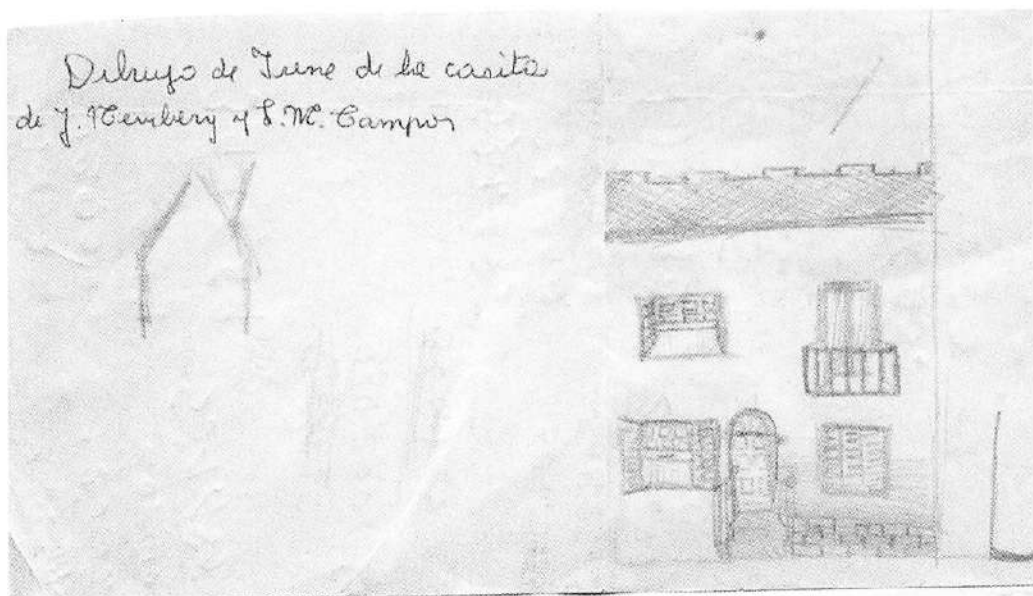 Dibujo de Irene de la casita
de J. Newbery y S. M. Campos